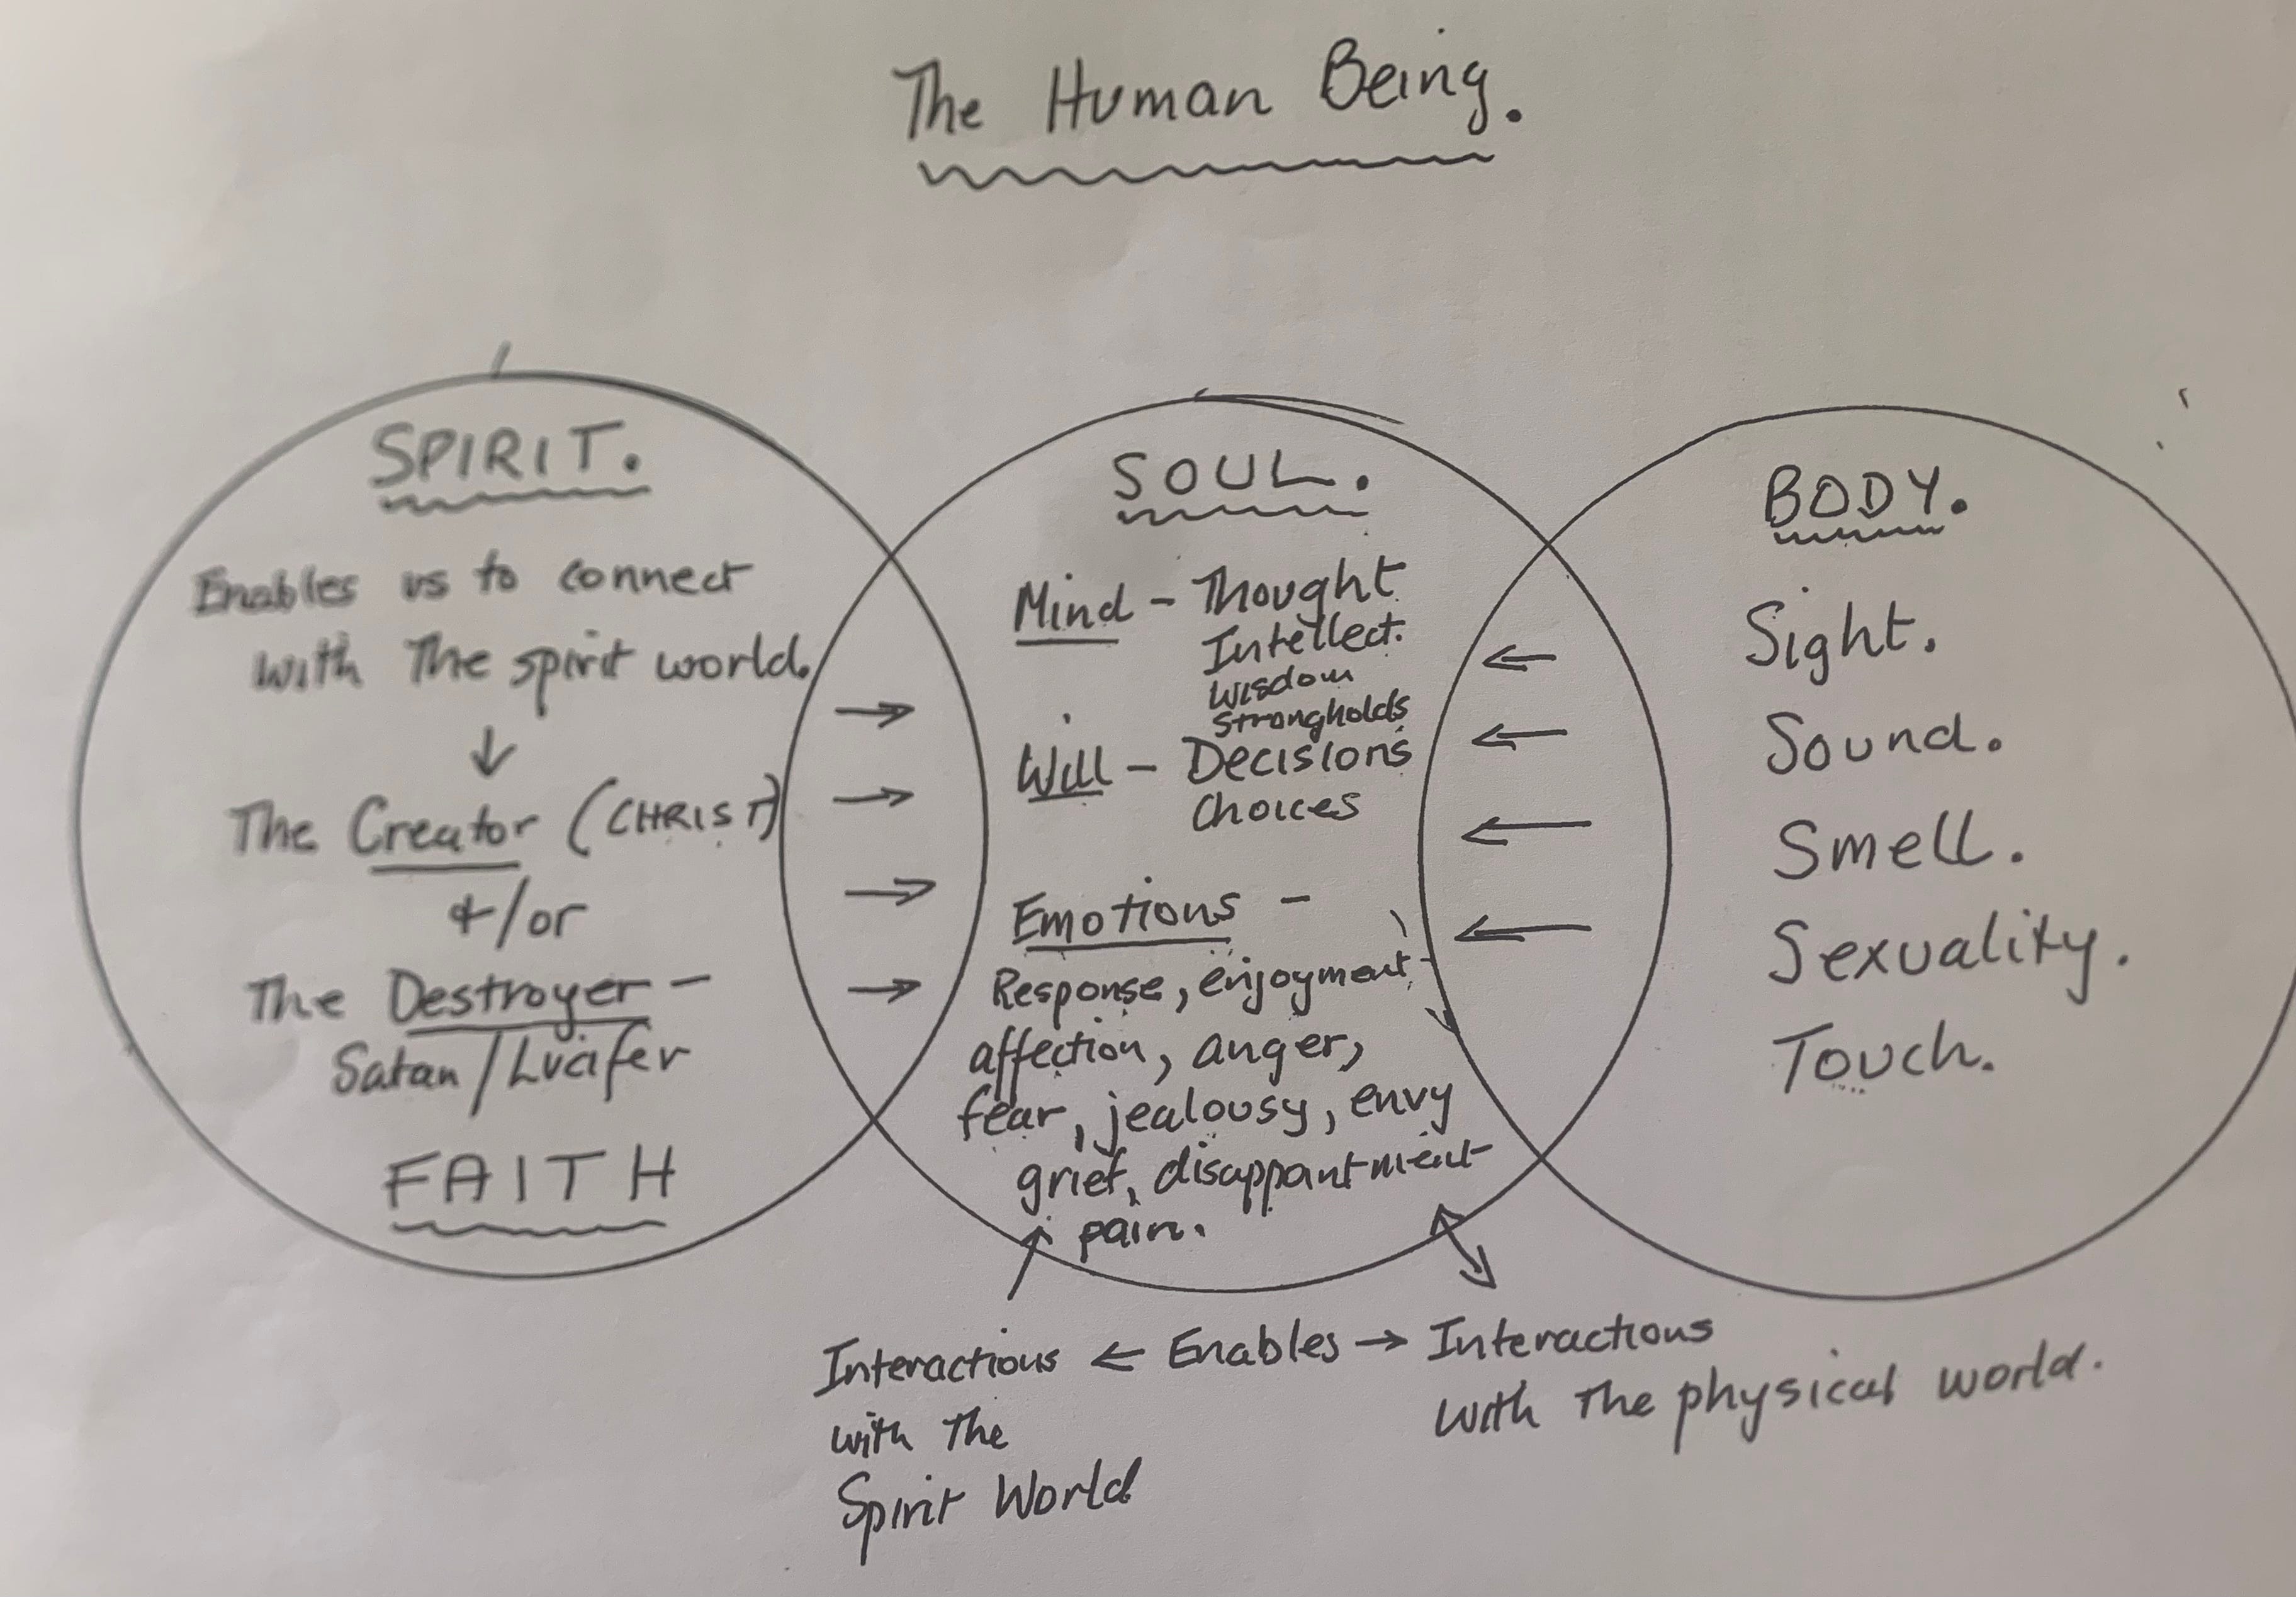 The Human Being.
SPIRIT.
Enables us to connect
with The spirit world.
↓
The Creator (CHRIST)
+/or
The Destroyer -
Satan/Lucifer
FAITH
SOUL.
Mind - Thought
Intellect.
Wisdom
Strongholds
Will - Decisions
Choices
Emotions -
Response, enjoyment,
affection, anger,
fear, jealousy, envy
grief, disappantment
pain.
BODY.
Sight.
Sound.
Smell.
Sexuality.
Touch.
Interactions ← Enables → Interactions
with The
Spirit World
with The physical world.